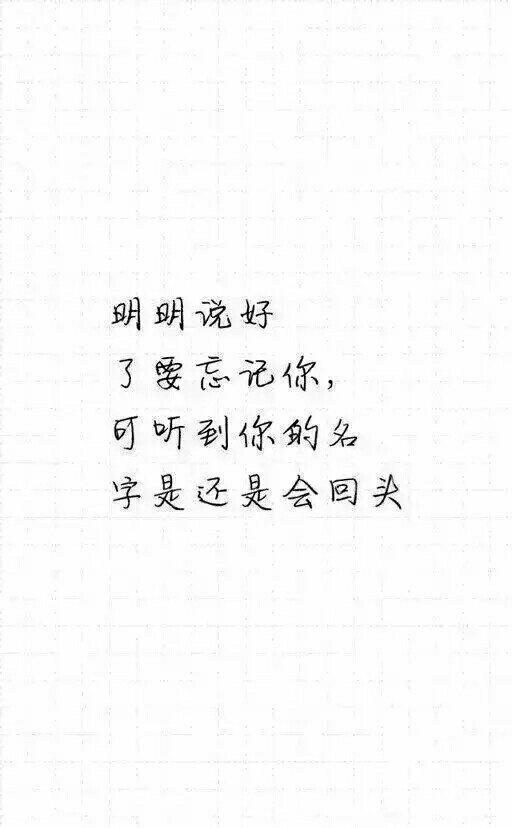 明明说好
了要忘记你,
可听到你的名
字是还是会回头